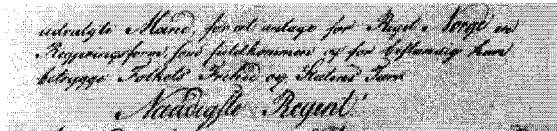 udvalgte Mænd, for at anlægge for Riget Norge en
Regieringsform, som fuldkommen og for bestandig kan
betrygge Folkets Frihed og Statens Tarv
Naadigste Regent!